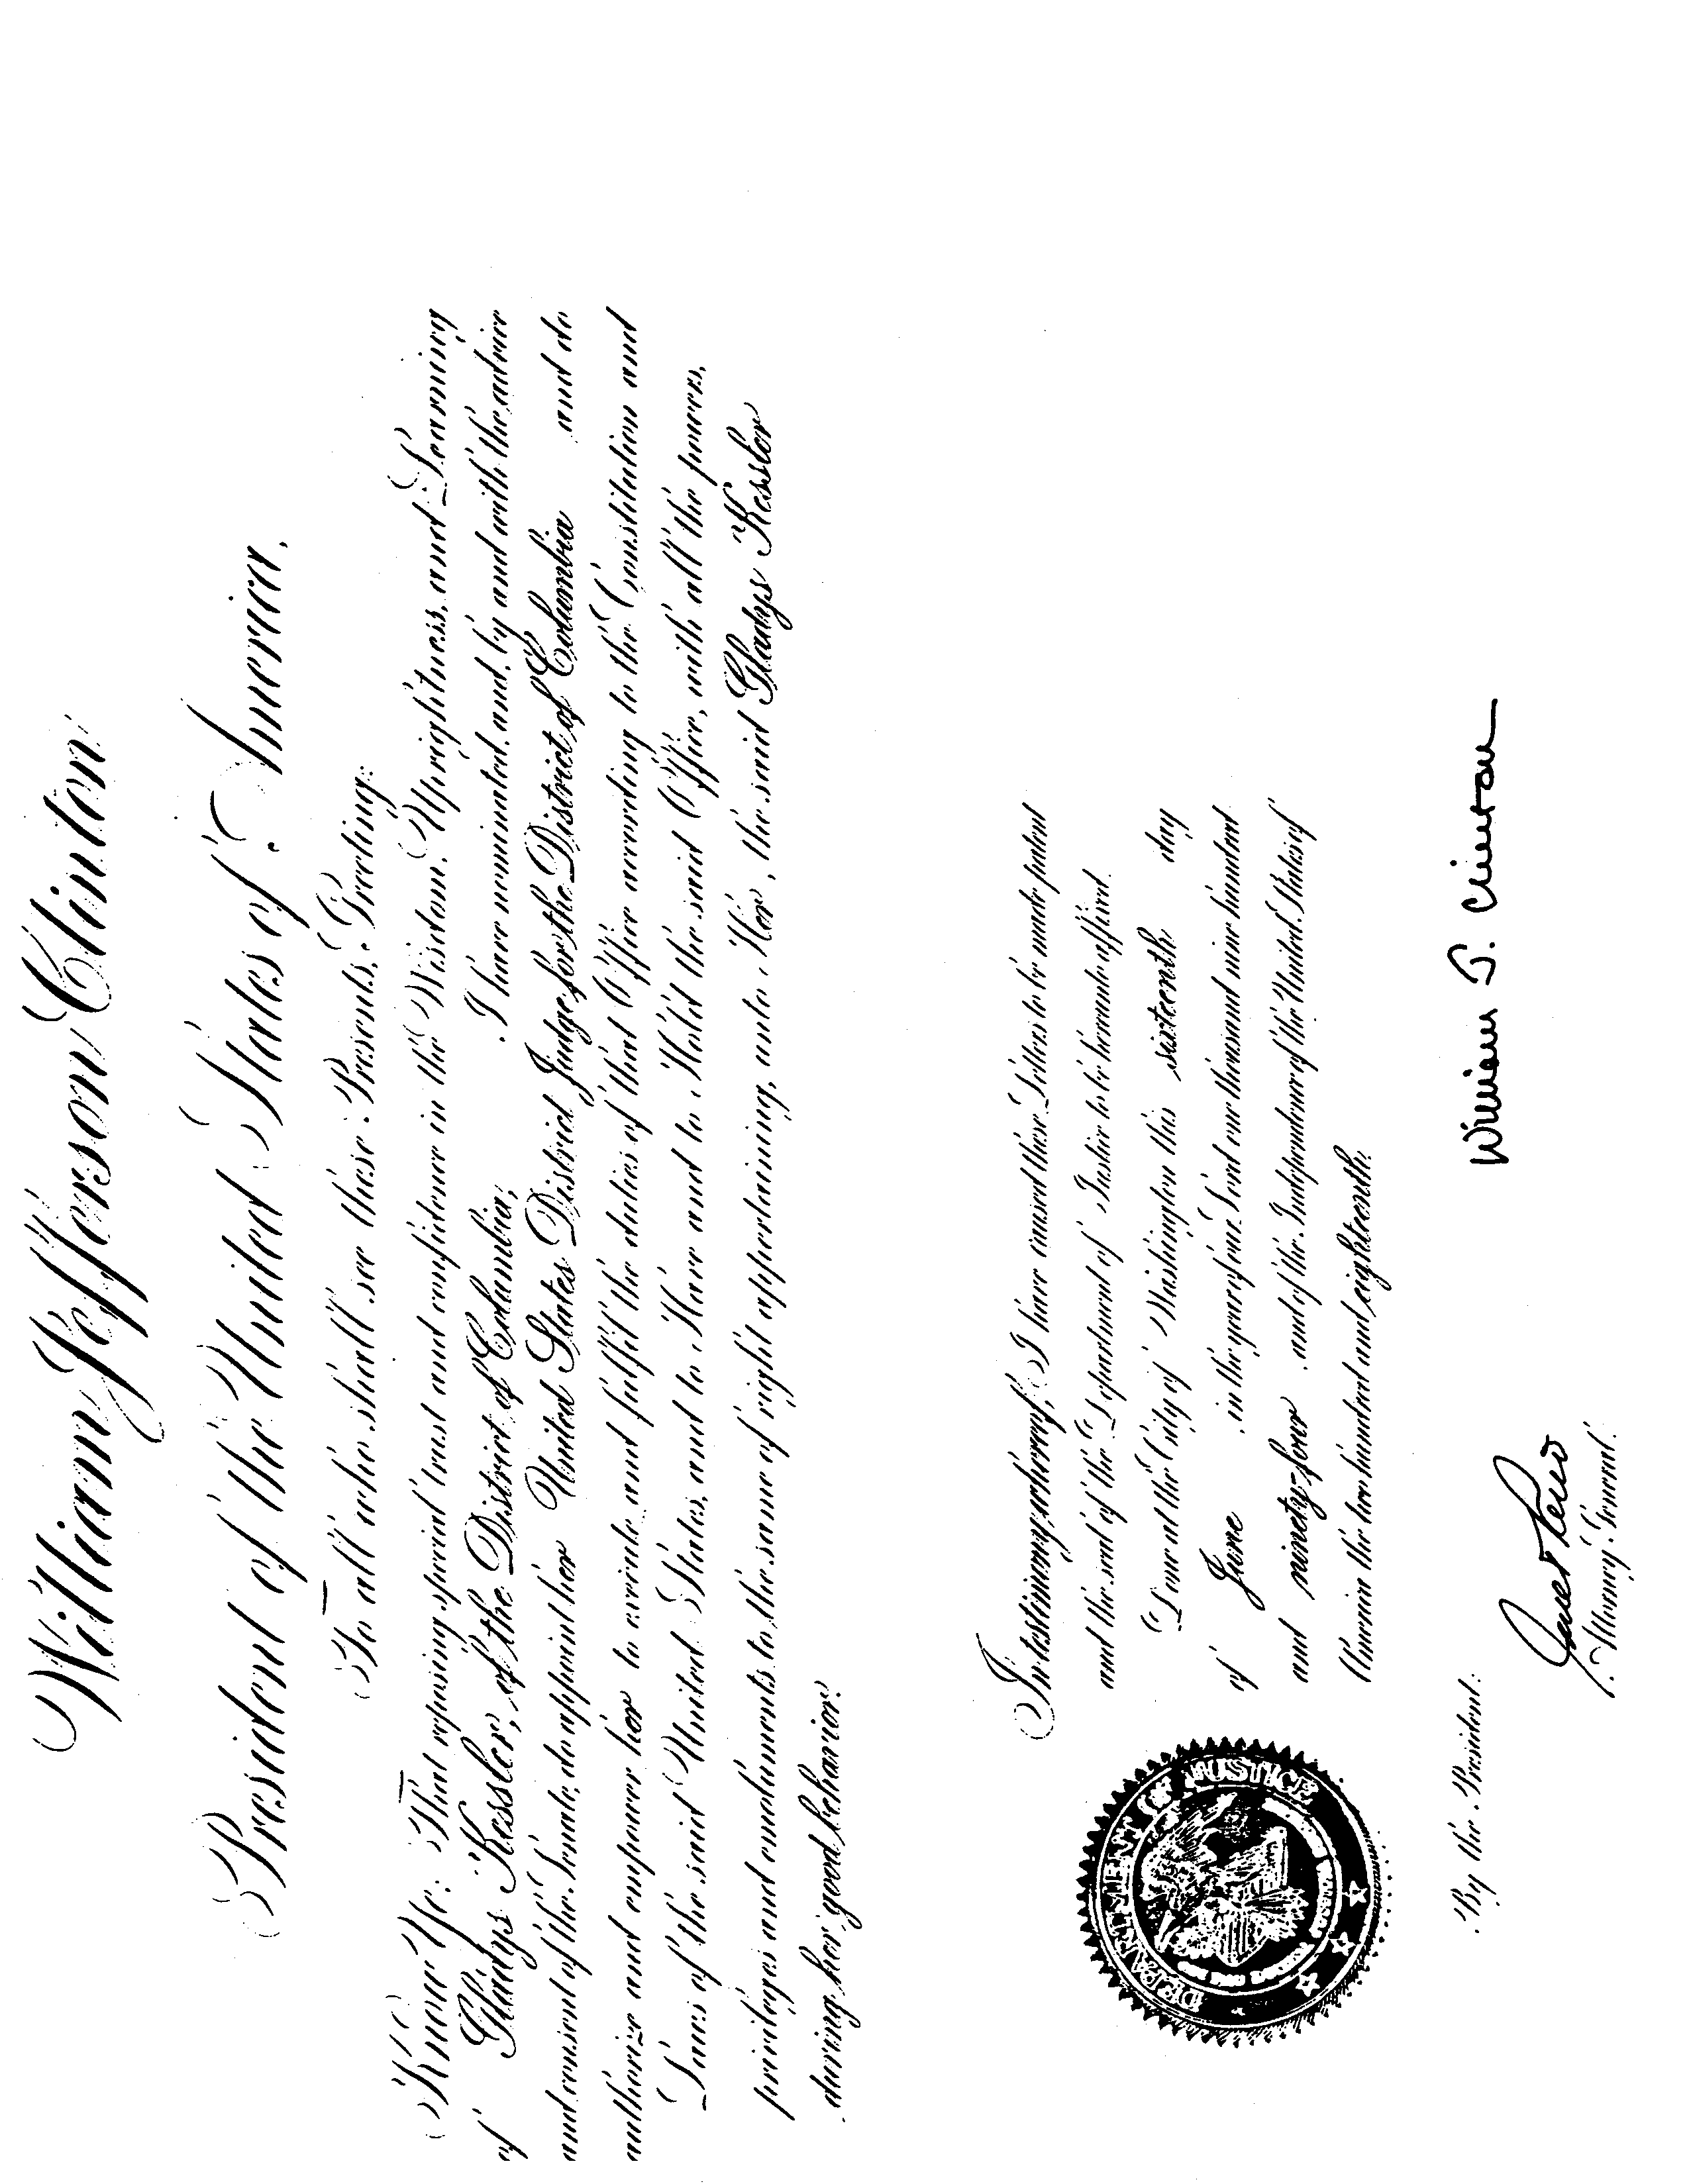 William Jefferson Clinton
President of the United States of America,
To all who shall see these Presents, Greeting:
Know Ye: That reposing special trust and confidence in the Wisdom, Uprightness, and Learning
of Gladys Kessler, of the District of Columbia, I have nominated, and, by and with the advice
and consent of the Senate, do appoint her United States District Judge for the District of Columbia and do
authorize and empower her to execute and fulfil the duties of that Office according to the Constitution and
Laws of the said United States, and to Have and to Hold the said Office, with all the powers,
privileges and emoluments to the same of right appertaining, unto Her, the said Gladys Kessler
during her good behavior.
In testimony whereof, I have caused these Letters to be made patent
and the seal of the Department of Justice to be hereunto affixed.
Done at the City of Washington this sixteenth day
of June in the year of our Lord one thousand nine hundred
and ninety-four and of the Independence of the United States of
America the two hundred and eighteenth.
DEPARTMENT OF JUSTICE
William J. Clinton
By the President:
Janet Reno
Attorney General.